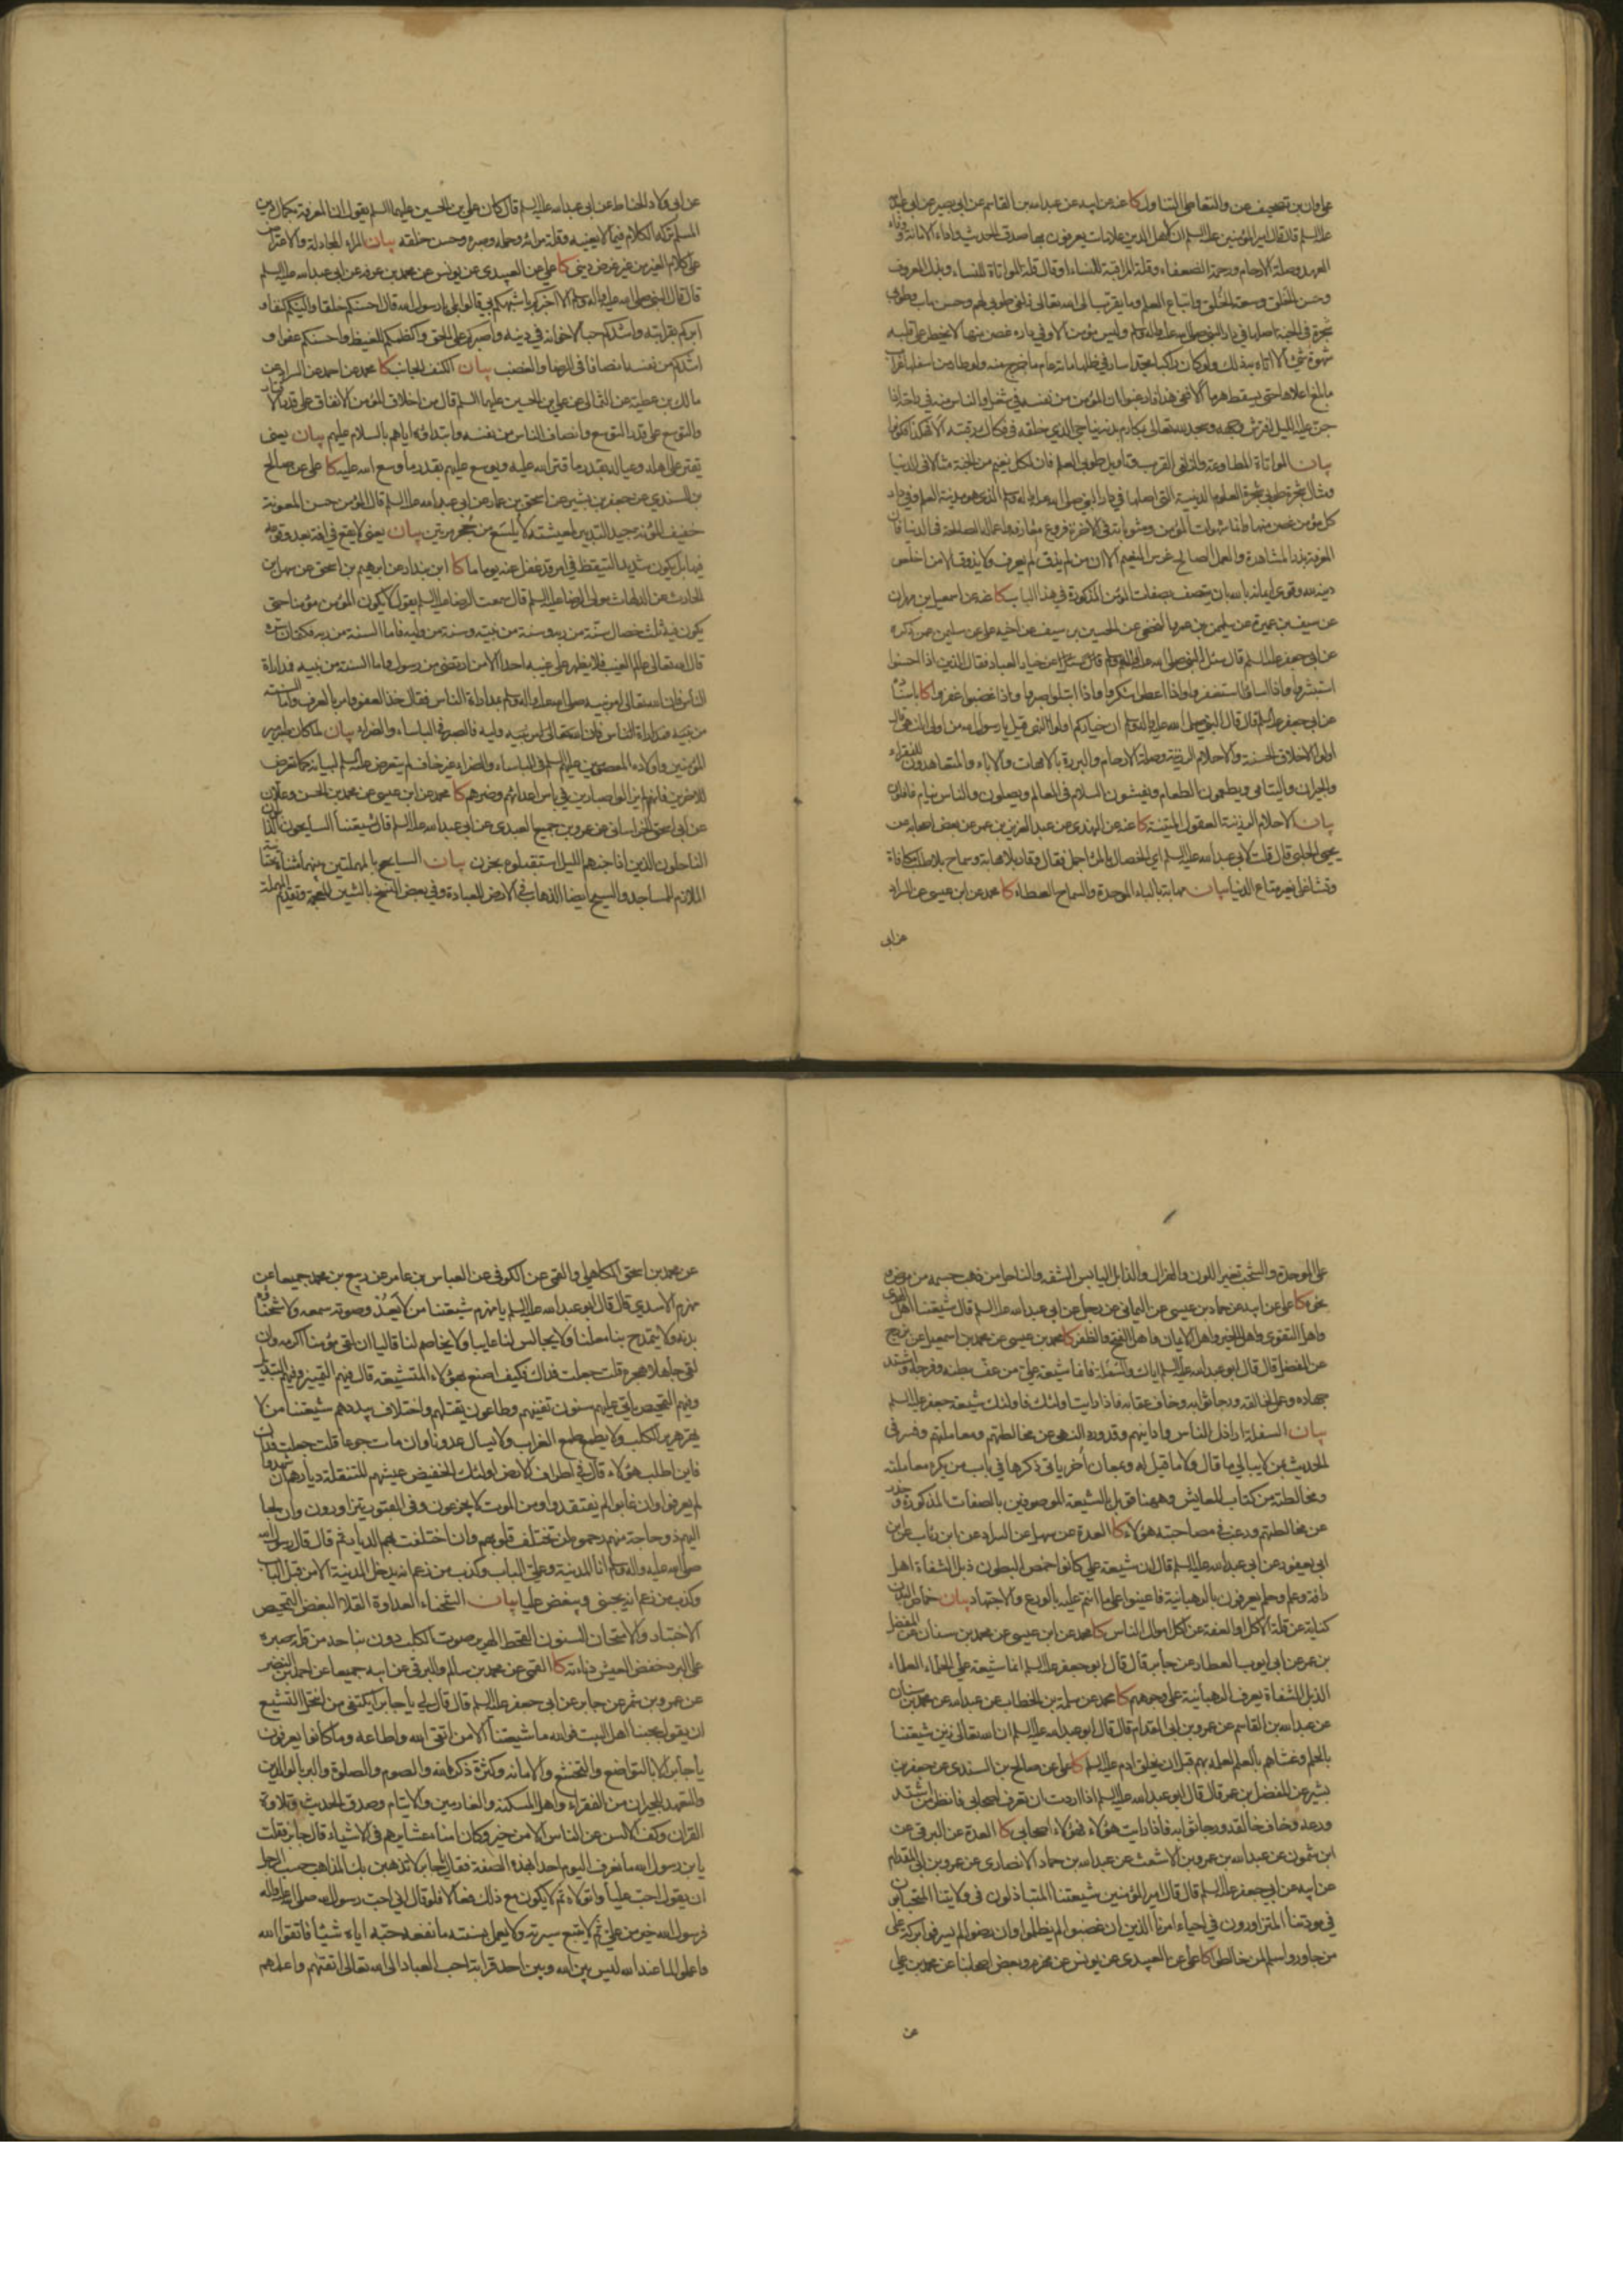 على وان بن تصحيف عن والتعاطى التناول كا عنه عن ابيه عن عبدالله بن القاسم عن ابى بصير عن ابى عبدالله
عليه السلم قال قال امير المؤمنين عليه السلم ان لاهل الدين علامات يعرفون بها صدق الحديث واداء الامانة ووفاء
العهد وصلة الارحام ورحمة الضعفاء وقلة المراقبة للنساء او قال قلة المواتاة للنساء وبذل المعروف
وحسن الخلق وسعة الخلق واتباع العلم وما يقرب الى الله تعالى زلفى طوبى لهم وحسن ماب وطوبى
شجرة فى الجنة اصلها فى دار النبى صلى الله عليه واله وسلم وليس مؤمن الا وفى داره غصن منها لا يخطر على قلبه
شهوة شئ الا اتاه به ذلك ولو ان راكبا مجدا سار فى ظلها مائة عام ما خرج منه ولو طار من اسفلها غراب
ما بلغ اعلاها حتى يسقط هرما الا ففى هذا فارغبوا ان المؤمن من نفسه فى شغل والناس منه فى راحة اذا
جن عليه الليل افترش وجهه وسجد لله تعالى بمكارم بدنه يناجى الذى خلقه فى فكاك رقبته الا هكذا فكونوا
بيان المواتاة المطاوعة والزلفى القرب وتاويل طوبى العلم فان لكل نعيم من الجنة مثالا فى الدنيا
ومثال شجرة طوبى شجرة العلوم الدينية التى اصلها فى دار النبى صلى الله عليه واله وسلم الذى هو مدينة العلم وفى دار
كل مؤمن غصن منها وانما شهوات المؤمن ومثوباته فى الاخرة فروع معارفه واعماله الصالحة فى الدنيا فان
المعرفة بذر المشاهدة والعمل الصالح غرس النعيم الا ان من لم يذق لم يعرف ولا يذوق الا من اخلص
دينه لله وقوى ايمانه بالله بان يتصف بصفات المؤمن المذكورة فى هذا الباب كا عنه عن اسمعيل بن مهران
عن سيف بن عميرة عن سليمن بن عمرو النخعى عن الحسين بن سيف عن اخيه على عن سليمن عمن ذكره
عن ابى جعفر عليه السلم قال سئل النبى صلى الله عليه واله وسلم عن خيار العباد فقال الذين اذا احسنوا
استبشروا واذا اساؤا استغفروا واذا اعطوا شكروا واذا ابتلوا صبروا واذا غضبوا غفروا كا باسناده
عن ابى جعفر عليه السلم قال قال النبى صلى الله عليه واله وسلم ان خياركم اولوا النهى قيل يا رسول الله من اولوا النهى قال
اولوا الاخلاق الحسنة والاحلام الرزينة وصلة الارحام والبررة بالامهات والاباء والمتعاهدون للفقراء
والجيران واليتامى ويطعمون الطعام ويفشون السلام فى العالم ويصلون والناس نيام غافلون
بيان الاحلام الرزينة العقول المتينة كا عنه عن النهدى عن عبد العزيز بن عمر عن بعض اصحابه عن
يحيى الحلبى قال قلت لابى عبدالله عليه السلم اى الخصال بالمرء اجمل فقال وقار بلا مهابة وسماح بلا طلب مكافاة
وتشاغل بغير متاع الدنيا بيان مهابة بالباء الموحدة والسماح العطاء كا محمد عن ابن عيسى عن السراد
عن ابى
عن ابى ولاد الحناط عن ابى عبدالله عليه السلم قال كان على بن الحسين عليهما السلم يقول ان المعرفة بكمال دين
المسلم تركه الكلام فيما لا يعنيه وقلة مرائه وحلمه وصبره وحسن خلقه بيان المراء المجادلة والاعتراض
على كلام الغير من غير غرض دينى كا على عن العبيدى عن يونس عن محمد بن عرفة عن ابى عبدالله عليه السلم
قال قال النبى صلى الله عليه واله وسلم الا اخبركم باشبهكم بى قالوا بلى يا رسول الله قال احسنكم خلقا والينكم كنفا و
ابركم بقرابته واشدكم حبا لاخوانه فى دينه واصبركم على الحق واكظمكم للغيظ واحسنكم عفوا و
اشدكم من نفسه انصافا فى الرضا والغضب بيان الكنف الجانب كا محمد عن احمد عن السراد عن
مالك بن عطية عن الثمالى عن على بن الحسين عليهما السلم قال من اخلاق المؤمن الانفاق على قدر الاقتار
والتوسع على قدر التوسع وانصاف الناس من نفسه وابتداؤه اياهم بالسلام عليهم بيان يعنى
يقتر على اهله وعياله بقدر ما قتر الله عليه ويوسع عليهم بقدر ما وسع الله عليه كا على عن صالح
بن السندى عن جعفر بن بشير عن اسحق بن عمار عن ابى عبدالله عليه السلم قال المؤمن حسن المعونة
خفيف المؤنة جيد التدبير لمعيشته لا يلسع من جحر مرتين بيان يعنى لا يقع فى افة بعد وقوعه
فيها بل يكون شديد التيقظ فى امر قد غفل عنه يوما ما كا ابن بندار عن ابرهيم بن اسحق عن سهل بن
الحارث عن الدلهاث مولى الرضا عليه السلم قال سمعت الرضا عليه السلم يقول لا يكون المؤمن مؤمنا حتى
يكون فيه ثلث خصال سنة من ربه وسنة من نبيه وسنة من وليه فاما السنة من ربه فكتمان سره
قال الله تعالى عالم الغيب فلا يظهر على غيبه احدا الا من ارتضى من رسول واما السنة من نبيه فمداراة
الناس فان الله تعالى امر نبيه صلى الله عليه واله وسلم بمداراة الناس فقال خذ العفو وامر بالعرف واما السنة
من وليه فالصبر فى الباساء والضراء بيان لما كان صبر امير
المؤمنين واولاده المعصومين عليهم السلم فى الباساء والضراء غير خاف لم يتعرض عليه السلم لبيانه كما تعرض
للاخرين كا محمد عن ابن عيسى عن محمد بن الحسن وعلان
عن ابى اسحق الخراسانى عن عمرو بن جميع العبدى عن ابى عبدالله عليه السلم قال شيعتنا السايحون الذابلون
الناحلون الذين اذا جنهم الليل استقبلوه بحزن بيان السايح بالمهملتين بينهما مثناة تحتانية
الملازم للمساجد والسيح ايضا الذهاب فى الارض للعبادة وفى بعض النسخ بالشين المعجمة وتقديم المهملة
على الموحدة والشحب تغير اللون والهزال والذابل اليابس الشفه والناحل من ذهب جسمه من مرض ونحوه
كا على عن ابيه عن حماد بن عيسى عن اليمانى عن رجل عن ابى عبدالله عليه السلم قال شيعتنا اهل الهدى
واهل التقوى واهل الخير واهل الايمان واهل الفتح والظفر كا محمد بن عيسى عن محمد بن اسمعيل عن بزرج
عن المفضل قال قال ابو عبدالله عليه السلم اياك والسفلة فانما شيعة على من عف بطنه وفرجه واشتد
جهاده وعمل لخالقه ورجا ثوابه وخاف عقابه فاذا رايت اولئك فاولئك شيعة جعفر عليه السلم
بيان السفلة اراذل الناس وادانيهم وقد ورد النهى عن مخالطتهم ومعاملتهم وفسر فى
الحديث بمن لا يبالى ما قال ولا ما قيل له وبمعان أخر ياتى ذكرها فى باب من يكره معاملته
ومخالطته من كتاب المعايش وههنا قوبل بالشيعة الموصوفين بالصفات المذكورة وحذر
عن مخالطتهم ورغب فى مصاحبة هؤلاء كا العدة عن سهل عن السراد عن ابن رئاب عن ابن
ابى يعفور عن ابى عبدالله عليه السلم قال ان شيعة على كانوا خمص البطون ذبل الشفاه اهل
رافة وعلم وحلم يعرفون بالرهبانية فاعينوا على ما انتم عليه بالورع والاجتهاد بيان خماص البطن
كناية عن قلة الاكل او العفة عن اكل اموال الناس كا محمد عن ابن عيسى عن محمد بن سنان عن المفضل
بن عمر عن ابى ايوب العطار عن جابر قال قال ابو جعفر عليه السلم انما شيعة على الحلماء العلماء
الذبل الشفاه يعرف الرهبانية على وجوههم كا محمد عن سلمة بن الخطاب عن عبدالله عن محمد بن سنان
عن عبدالله بن القاسم عن عمرو بن ابى المقدام قال قال ابو عبدالله عليه السلم ان الله تعالى زين شيعتنا
بالحلم وغشاهم بالعلم لعلمه بهم قبل ان يخلق ادم عليه السلم كا على عن صالح بن السندى عن جعفر بن
بشير عن المفضل بن عمر قال قال ابو عبدالله عليه السلم اذا اردت ان تعرف اصحابى فانظر من اشتد
ورعه وخاف خالقه ورجا ثوابه فاذا رايت هؤلاء فهؤلاء اصحابى كا العدة عن البرقى عن
ابن شمون عن عبدالله بن عمرو بن الاشعث عن عبدالله بن حماد الانصارى عن عمرو بن ابى المقدام
عن ابيه عن ابى جعفر عليه السلم قال قال امير المؤمنين شيعتنا المتباذلون فى ولايتنا المتحابون
فى مودتنا المتزاورون فى احياء امرنا الذين ان غضبوا لم يظلموا وان رضوا لم يسرفوا بركة على
من جاوروا سلم لمن خالطوا كا على عن العبيدى عن يونس عن محرم وبعض اصحابنا عن محمد بن على
عن
عن محمد بن اسحق الكاهلى والقمى عن الكوفى عن العباس بن عامر عن ربيع بن محمد جميعا عن
مهزم الاسدى قال قال ابو عبدالله عليه السلم يا مهزم شيعتنا من لا يعدو صوته سمعه ولا شحناؤه
بدنه ولا يمتدح بنا معلنا ولا يجالس لنا عايبا ولا يخاصم لنا قاليا ان لقى مؤمنا اكرمه وان
لقى جاهلا هجره قلت جعلت فداك فكيف اصنع بهؤلاء المتشيعة قال فيهم التمييز وفيهم التبديل
وفيهم التمحيص ياتى عليهم سنون تفنيهم وطاعون يقتلهم واختلاف يبددهم شيعتنا من لا
يهر هرير الكلب ولا يطمع طمع الغراب ولا يسال عدونا وان مات جوعا قلت جعلت فداك
فاين اطلب هؤلاء قال فى اطراف الارض اولئك الخفيض عيشهم المنتقلة ديارهم ان شهدوا
لم يعرفوا وان غابوا لم يفتقدوا ومن الموت لا يجزعون وفى القبور يتزاورون وان لجا
اليهم ذو حاجة منهم رحموه لن تختلف قلوبهم وان اختلفت بهم الديار ثم قال قال رسول الله
صلى الله عليه واله وسلم انا المدينة وعلى الباب وكذب من زعم انه يدخل المدينة الا من قبل الباب
وكذب من زعم انه يحبنى ويبغض عليا بيان الشحناء العداوة القلا البغض التمحيص
الاختبار والامتحان السنون القحط الهرير صوت الكلب دون نباحه من قلة صبره
على البرد خفض العيش دناءته كا القمى عن محمد بن سالم والبرقى عن ابيه جميعا عن احمد بن النضر
عن عمرو بن شمر عن جابر عن ابى جعفر عليه السلم قال قال لى يا جابر ايكتفى من انتحل التشيع
ان يقول بحبنا اهل البيت فوالله ما شيعتنا الا من اتقى الله واطاعه وما كانوا يعرفون
يا جابر الا بالتواضع والتخشع والامانة وكثرة ذكر الله والصوم والصلوة والبر بالوالدين
والتعهد للجيران من الفقراء واهل المسكنة والغارمين والايتام وصدق الحديث وتلاوة
القران وكف الالسن عن الناس الا من خير وكانوا امناء عشايرهم فى الاشياء قال جابر فقلت
يا بن رسول الله ما نعرف اليوم احدا بهذه الصفة فقال يا جابر لا تذهبن بك المذاهب حسب الرجل
ان يقول احب عليا واتولاه ثم لا يكون مع ذلك فعالا فلو قال انى احب رسول الله صلى الله عليه واله
فرسول الله خير من على ثم لا يتبع سيرته ولا يعمل بسنته ما نفعه حبه اياه شيئا فاتقوا الله
واعملوا لما عند الله ليس بين الله وبين احد قرابة احب العباد الى الله تعالى اتقيهم واعملهم